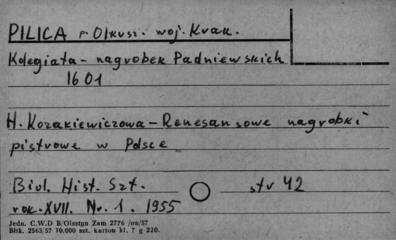 PILICA p. Olkusz. woj. Krak.
Kolegiata - nagrobek Padniewskich
1601
H. Kozakiewiczowa - Renesansowe nagrobki
piętrowe w Polsce
Biul. Hist. Szt. str 42
rok. XVII. Nr. 1. 1955
Jedn. C.W.D B/Olsztyn Zam 2776 /on/57
Bltk. 2563/57 10.000 szt. karton kl. 7 g 220.